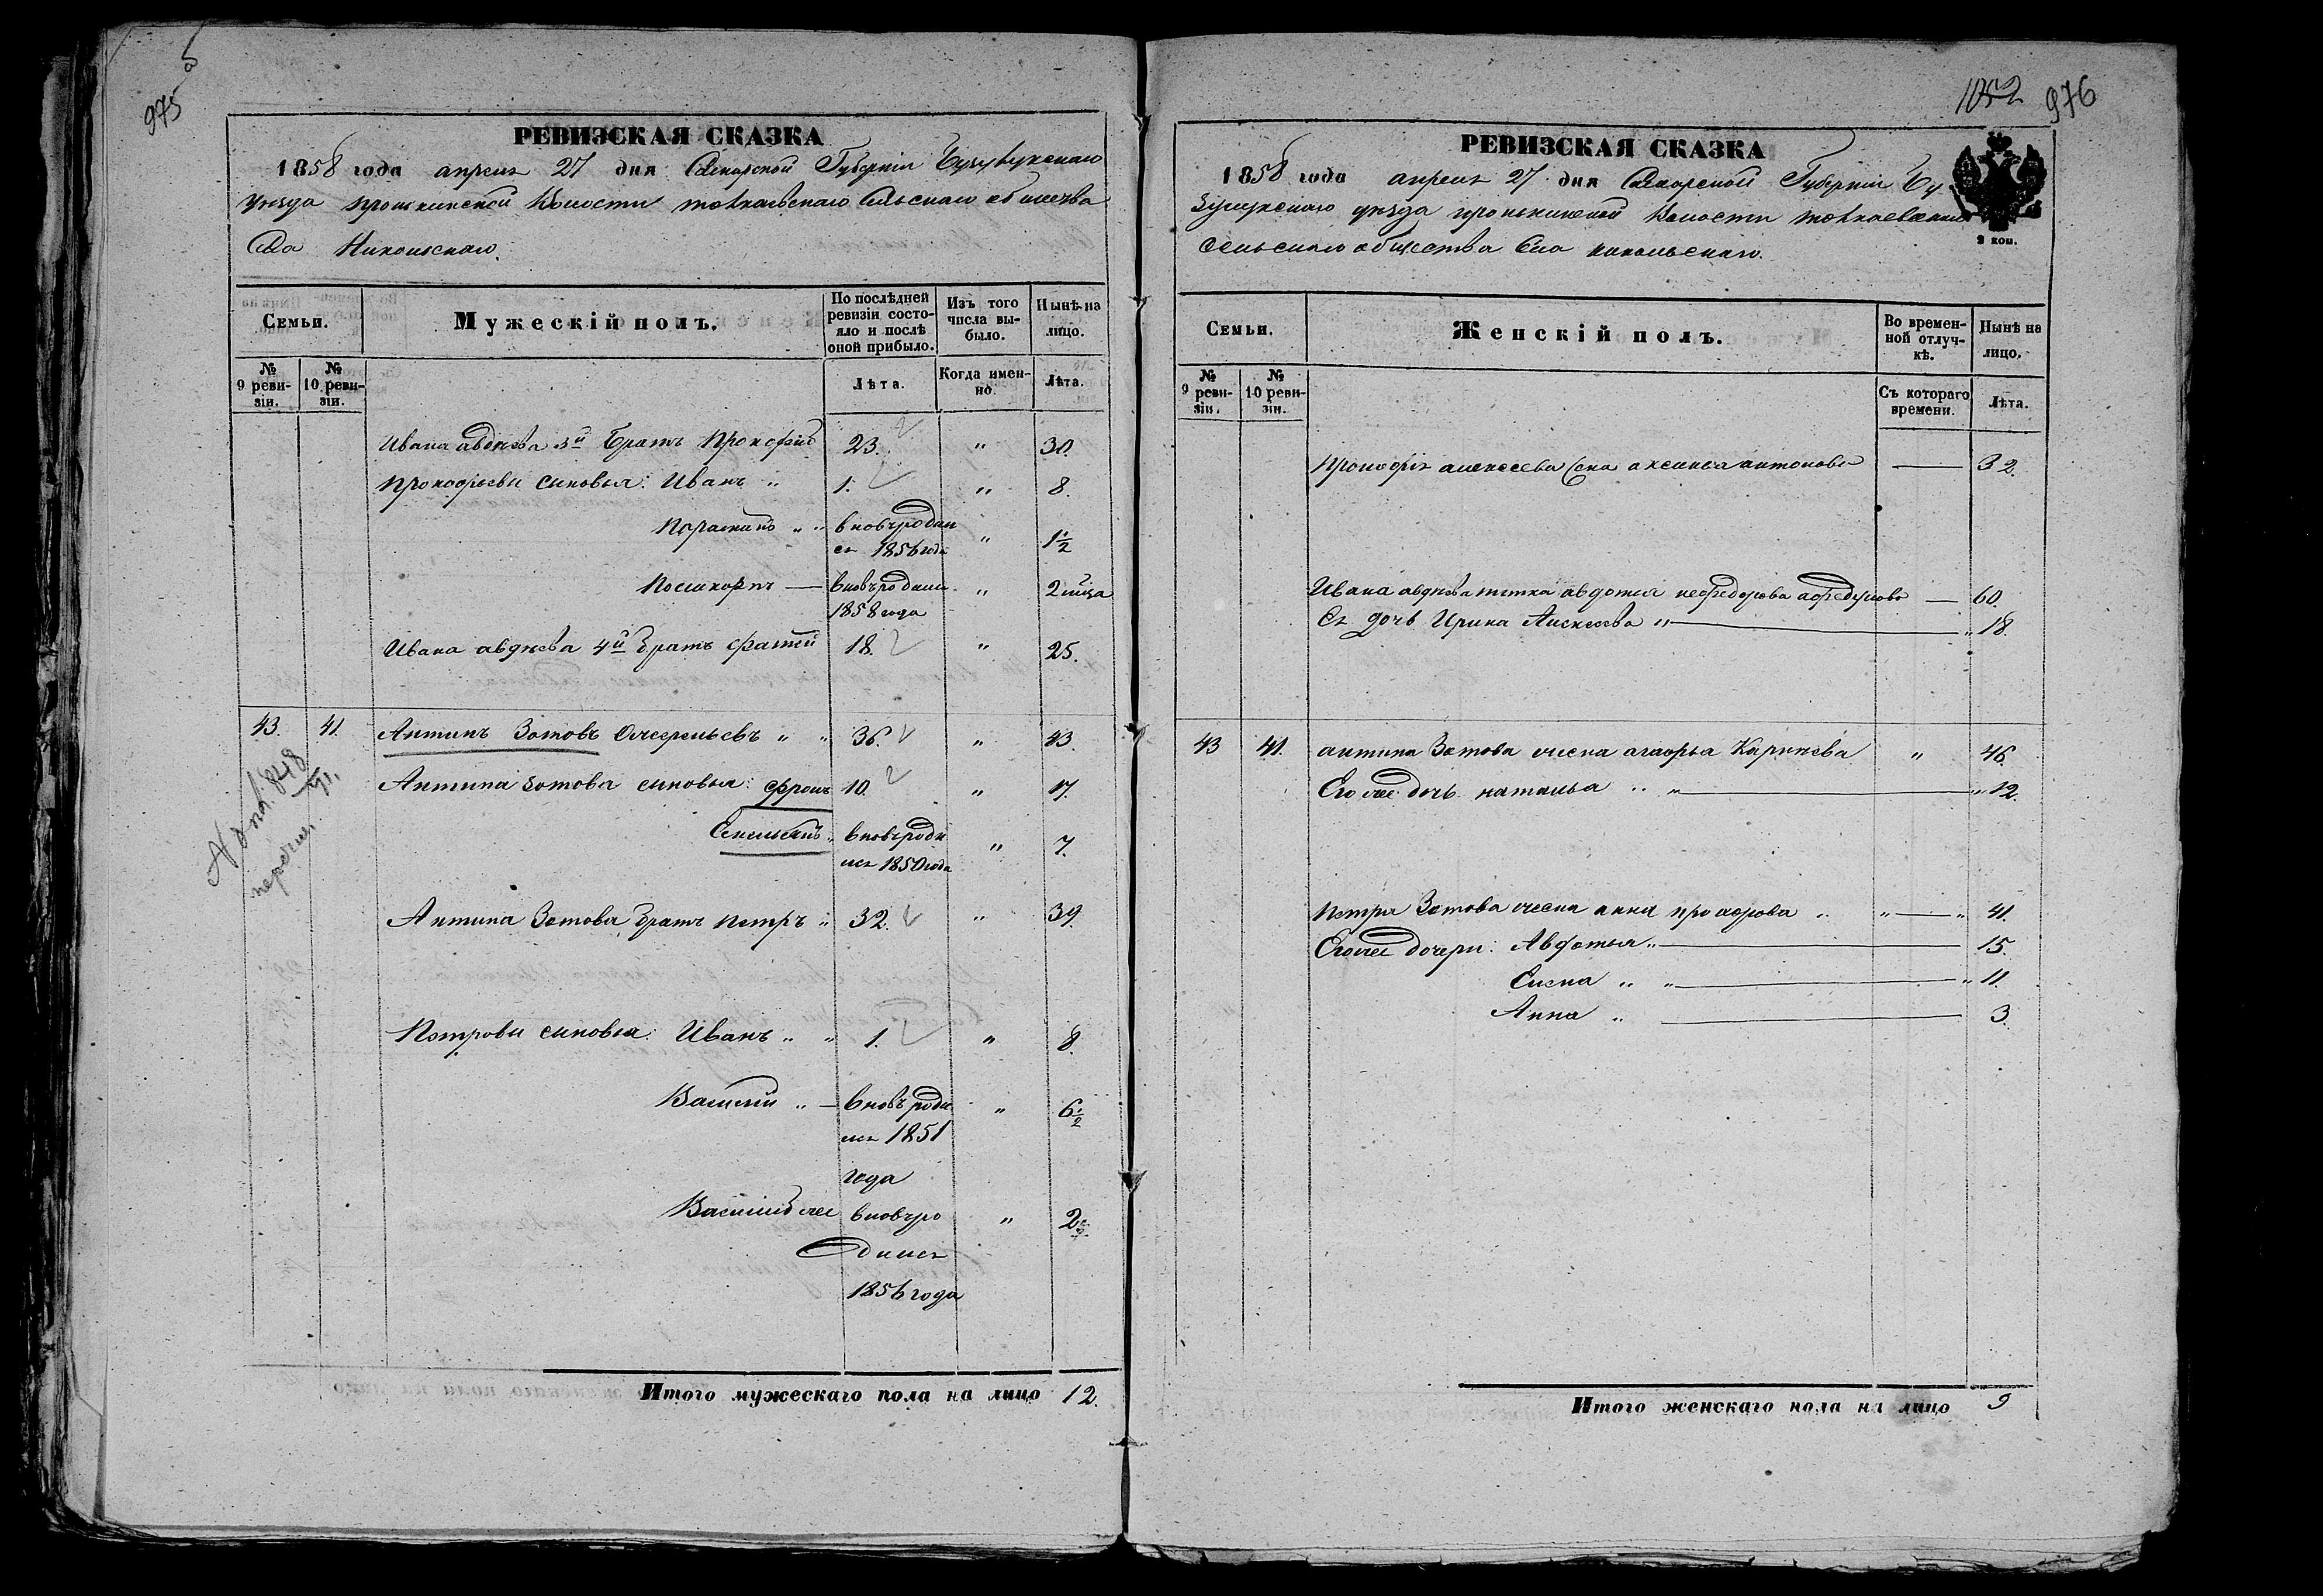 975
РЕВИЗСКАЯ СКАЗКА
1858 года апреля 27 дня Самарской Губернiи Бузулукскаго
уѣзда пронькинской Волости токаевскаго Сельскаго общества
Села Никольскаго.
Семьи.
Мужескiй полъ.
По послѣдней ревизiи состояло и послѣ оной прибыло.
Изъ того числа выбыло.
Нынѣ на лицо.
№ 9 ревизiи.
№ 10 ревизiи.
Лѣта.
Когда именно.
Лѣта.
Ивана авдѣева 3й братъ Прокофiй 23. " 30.
Прокофьевы сыновья: Иванъ " 1. " 8.
" " вновьродил
ся 1856 года " 1 1/2
Поликарпъ — вновьродил.
1858 года " 2 мца
Ивана авдѣева 4й братъ фатей 18. " 25.
43. 41. Антипъ Зотовъ " " 36. " 43.
Антипа Зотова сыновья: фролъ 10. " 17.
" вновьроди
лся 1850 года " 7.
Антипа Зотова братъ петръ " 32. " 39.
Петровы сыновья: Иванъ " " 1. " 8.
Василiй " — вновь роди
лся 1851
года " 6 1/2
Василiй же вновьро
дился
1856 года " 2
Итого мужескаго пола на лицо 12.
1052 976
РЕВИЗСКАЯ СКАЗКА
1858 года апреля 27 дня Самарской Губернiи Бу-
зулукскаго уѣзда пронькинской Волости токаевскаго
сельскаго общества Села никольскаго.
2 коп.
Семьи.
Женскiй полъ.
Во временной отлучкѣ.
Нынѣ на лицо.
№ 9 ревизiи.
№ 10 ревизiи.
Съ котораго времени.
Лѣта.
Прокофiя алексеева жена аксинья антонова — 32.
Ивана авдѣева тетка авдотья — 60.
Ея дочь Ирина Алексеева " — " 18.
43 41. антипа Зотова жена агафья Кирилева " 46.
Его же дочь наталья " " — " 12.
Петра Зотова жена анна " " — " 41.
Егоже дочери: Авдотья " — 15.
Елена " " — " 11.
Анна " — 3.
Итого женскаго пола на лицо 9